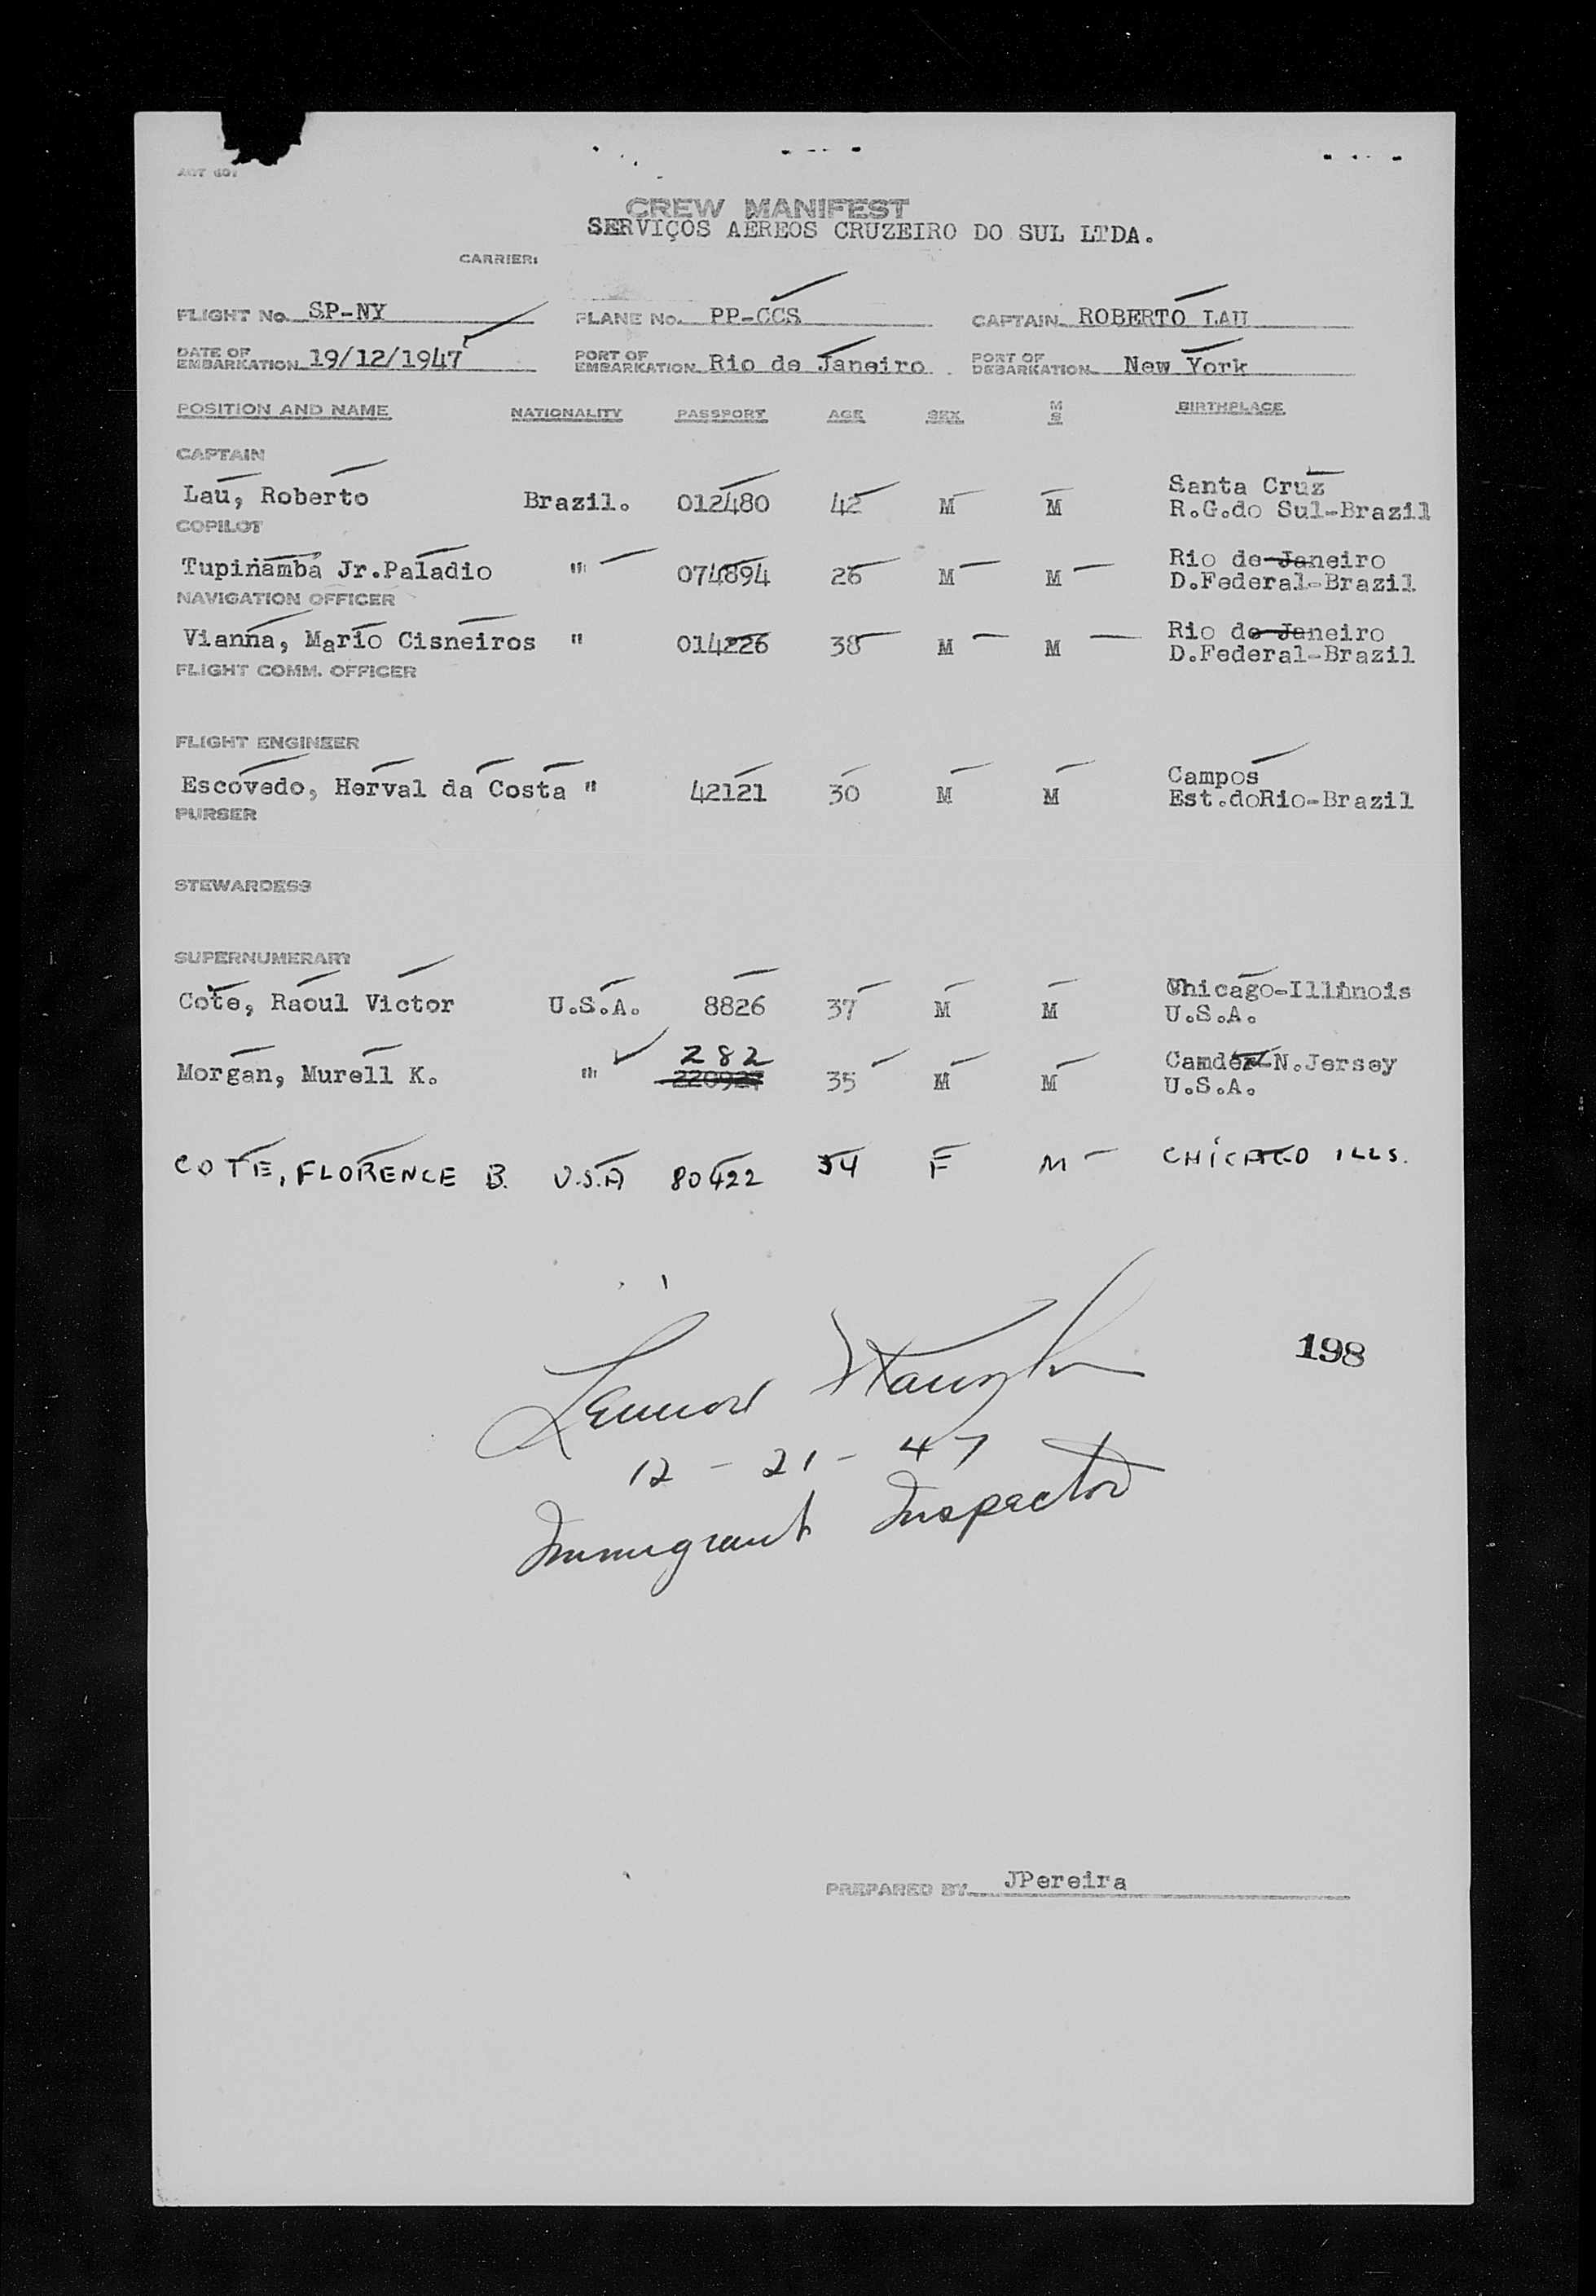 CREW MANIFEST
SERVIÇOS AEREOS CRUZEIRO DO SUL LTDA.
CARRIER:
FLIGHT No. SP-NY PLANE No. PP-CCS CAPTAIN ROBERTO LAU
DATE OF EMBARKATION 19/12/1947 PORT OF EMBARKATION Rio de Janeiro PORT OF DEBARKATION New York
POSITION AND NAME NATIONALITY PASSPORT AGE SEX M S BIRTHPLACE
CAPTAIN
Lau, Roberto Brazil. 012480 42 M M Santa Cruz
R.G.do Sul-Brazil
COPILOT
Tupinambá Jr.Paladio " 074894 26 M M Rio de Janeiro
D.Federal-Brazil
NAVIGATION OFFICER
Vianna, Mario Cisneiros " 014226 38 M M Rio de Janeiro
D.Federal-Brazil
FLIGHT COMM. OFFICER
FLIGHT ENGINEER
Escovedo, Herval da Costa " 42121 30 M M Campos
Est.doRio-Brazil
PURSER
STEWARDESS
SUPERNUMERARY
Cote, Raoul Victor U.S.A. 8826 37 M M Chicago-Illinois
U.S.A.
282
Morgan, Murell K. " 220927 35 M M Camden-N.Jersey
U.S.A.
COTE, FLORENCE B. U.S.A 80422 34 F M CHICAGO ILLS.
198
12-21-47
Immigrant Inspector
PREPARED BY JPereira